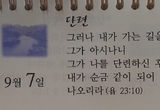 단련
그러나 내가 가는 길을
그가 아시나니
그가 나를 단련하신 후
내가 순금 같이 되어
나오리라 (욥 23:10)
9월 7일